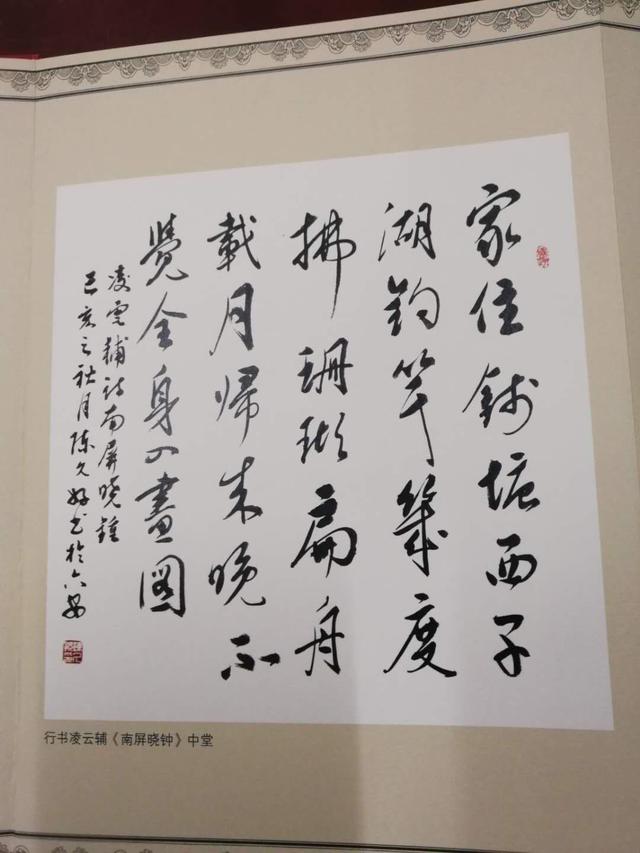 家住錢塘西子
湖釣竿幾度
拂珊瑚扁舟
載月歸來晚不
覺全身入畫圖
凌雲輔詩南屏曉鐘
己亥之秋月陈久书於六安
行书凌云辅《南屏晓钟》中堂